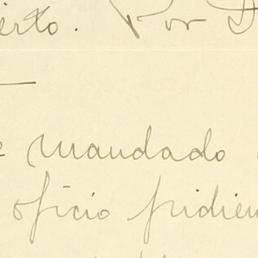 erto. Por D
e mandado
oficio pidien